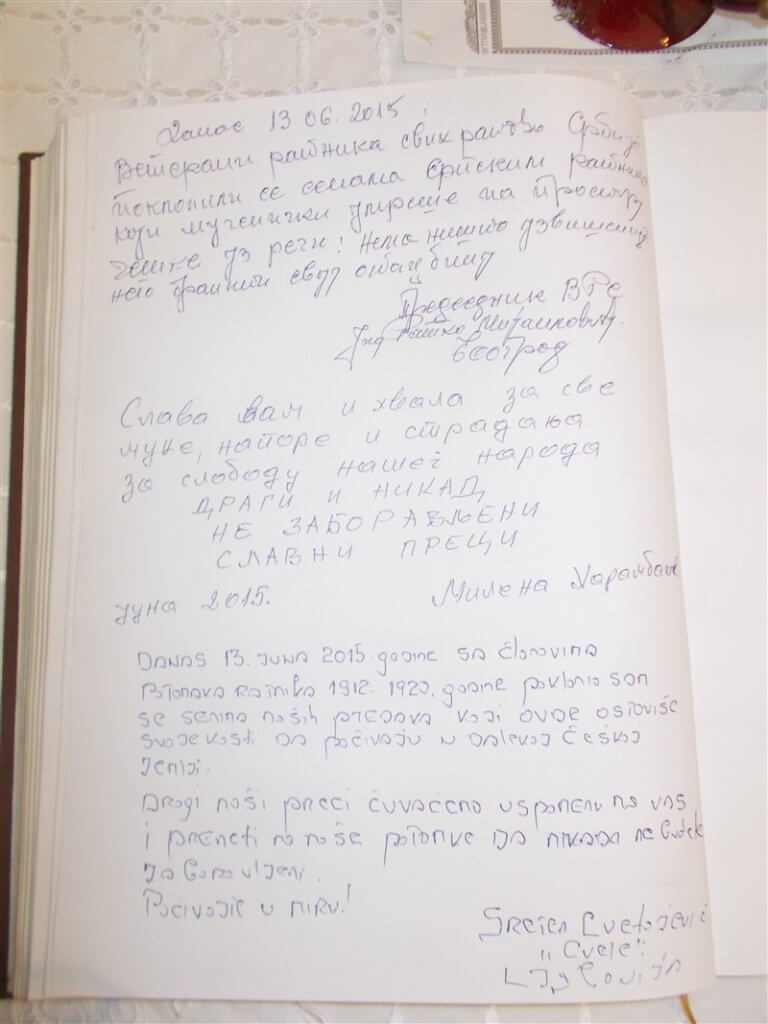 Данас 13.06.2015.
Ветерани ратника свих ратова Србије
поклонили се сенама српским ратницима
који мученички умреше на простору
Чешке уз речи: Нема ништо узвишеније
него бранити своју отаџбину
Председник ВРС
Београд
Слава вам и хвала за све
муке, напоре и страдања
за слободу нашег народа
ДРАГИ И НИКАД
НЕ ЗАБОРАВЉЕНИ
СЛАВНИ ПРЕЦИ
Јуна 2015.
Милена
Danas 13. Juna 2015. godine sa članovima
Potomaka Ratnika 1912-1920. godine poklonio sam
se senima naših predaka koji ovde ostaviše
svoje kosti da počivaju u dalekoj Češkoj
zemlji.
Dragi naši preci čuvaćemo uspomenu na vas
i preneti na naše potomke da nikada ne budete
zaboravljeni.
Počivajte u miru!
Srećen Cvetojević
"Cvele"
Ljubovija